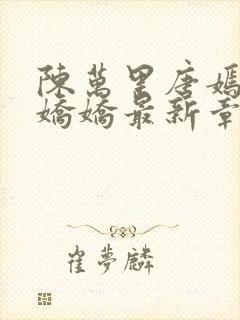 陳萬里唐嫣
嬌嬌最新章
崔夢麟